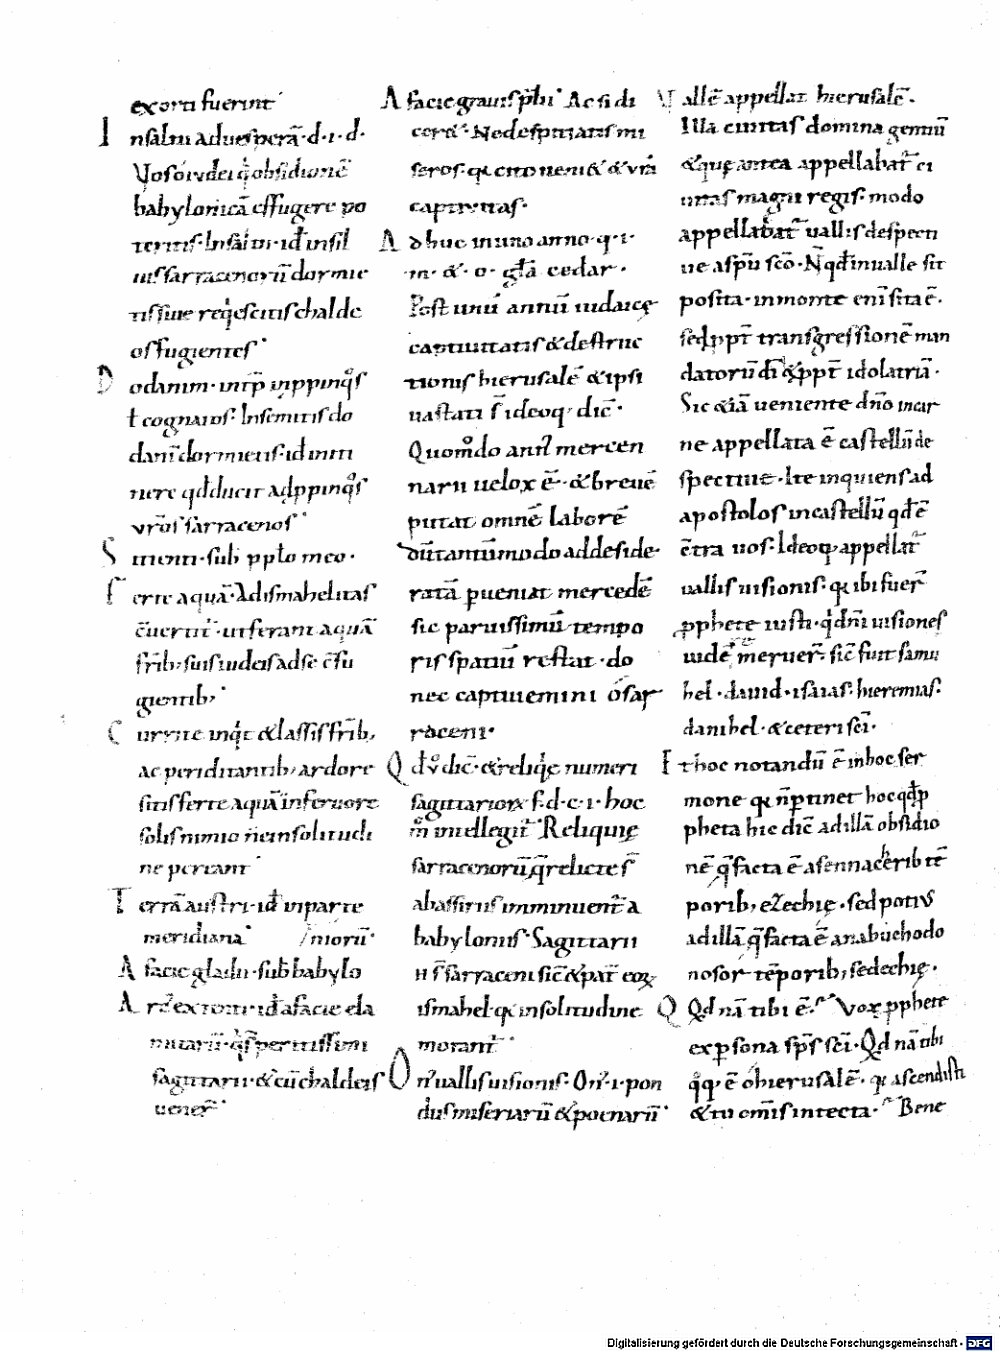 exorti fuerint·
Insaltu aduesperā·d·i·d·
Vos ó iudei q̇ obsidionē
babylonicā effugere po
teritis· Insaltu· id̄ insil
uis sarracenorū dormie
tis siue reqescitis chalde
os fugientes·
Dodanim· int̄p̄ inppinqͦs
ł cognatos· Insemitis do
danī dormietis· id̄ initi
nere qd̄ ducit adppinqͦs
vr̄os sarracenos·
Smenti· sub̄ pplo meo·
Ferte aquā· Ad ismahelitas
c̄uertit̄· ut ferant aquā
fr̄ib; suis iudeis ad se c̄fu
gientib;·
Currite inqͥt & lassis fr̄ib;
ac periditantib; ardore
sitis ferte aquā in feruore
solis nimio n̄ e insolitudi
ne pereant·
Terrā austri· id̄ inparte
meridiana· /niorū·
Afacie gladii· sub̄ babylo
Arc̄ ex tenti· id̄ afacie ela
mitarū· q̇ s̄ peritissimi
sagittarii· & cū chaldeis
uener̄·
Afacie grauis p̄lii· Ac si di
cer&· Ne despiciatis mi
seros· qͥ cito ueni& & vr̄a
captiuitas·
Adhuc in uno anno· q·i·
m· &· o· gl̄a cedar·
Post unū annū iudaicę
captiuitatis & destruc
tionis hierusalē & ipsi
uastati s̄ ideoq; dic̄·
Quom̊do ann̄ mercen
narii uelox ē· & breuē
putat omnē laborē
dūtantūmodo addeside·
ratā pueniat mercedē
sic paruissimū tempo
ris spatiū restat· do
nec captiuemini ó sar
raceni·
Qd̊ v dic̄· & reliqͥe numeri
sagittariorꝝ f·d·c·i· hoc
m̊ intellegit̄· Reliquię
sarracenorū q̄ relicte s̄
abassiriis imminuent̄ a
babyloniis· Sagittarii
ei s̄ sarraceni sic̄ & pat̄ eoꝝ
ismahel· qͥ insolitudine
morant̄·
On̄ uallis uisionis· On̄·i·pon
dus miseriarū & poenarū·
Vallē appellat hierusalē·
Illa ciuitas domina gentiū
& quę antea appellabat̄ ci
uitas magni regis· modo
appellabat̄ uallis despecti
ue asp̄u sc̄o· N̄ qd̄ inualle sit
posita· inmonte enī sita ē·
sed ppt̄ transgressionē man
datorū dī & ppt̄ idolatriā·
Sic & iā ueniente dn̄o incar
ne appellata ē castellū de
spectiue· Ite inquiens ad
apostolos incastellū qd̄ ē
c̄tra uos· Ideoq; appellat̄
uallis uisionis· qͥ ibi fuer̄
pphete iusti· q̇ dn̄i uisiones
uidē meruer̄· sic̄ fuit samu
hel· dauid· isaias· hieremias·
danihel· & ceteri sc̄i·
Et hoc notandū ē inhoc ser
mone qͥ n̄ ptinet hoc qd̄ p
pheta hic dic̄ ad illā obsidio
nē q̄ facta ē a sennacherib tē
porib; ezechię· sed potiꝰ
ad illā q̄ facta ē a nabuchodo
nosor tēporib; sedechię·
Qd nā tibi ē· Vox pphete
ex psona sp̄s sc̄i· Qd nā tibi
qͦq; ē ó hierusalē· qͥ ascendisti
& tu om̄is intecta· Bene
Digitalisierung gefördert durch die Deutsche Forschungsgemeinschaft - DFG